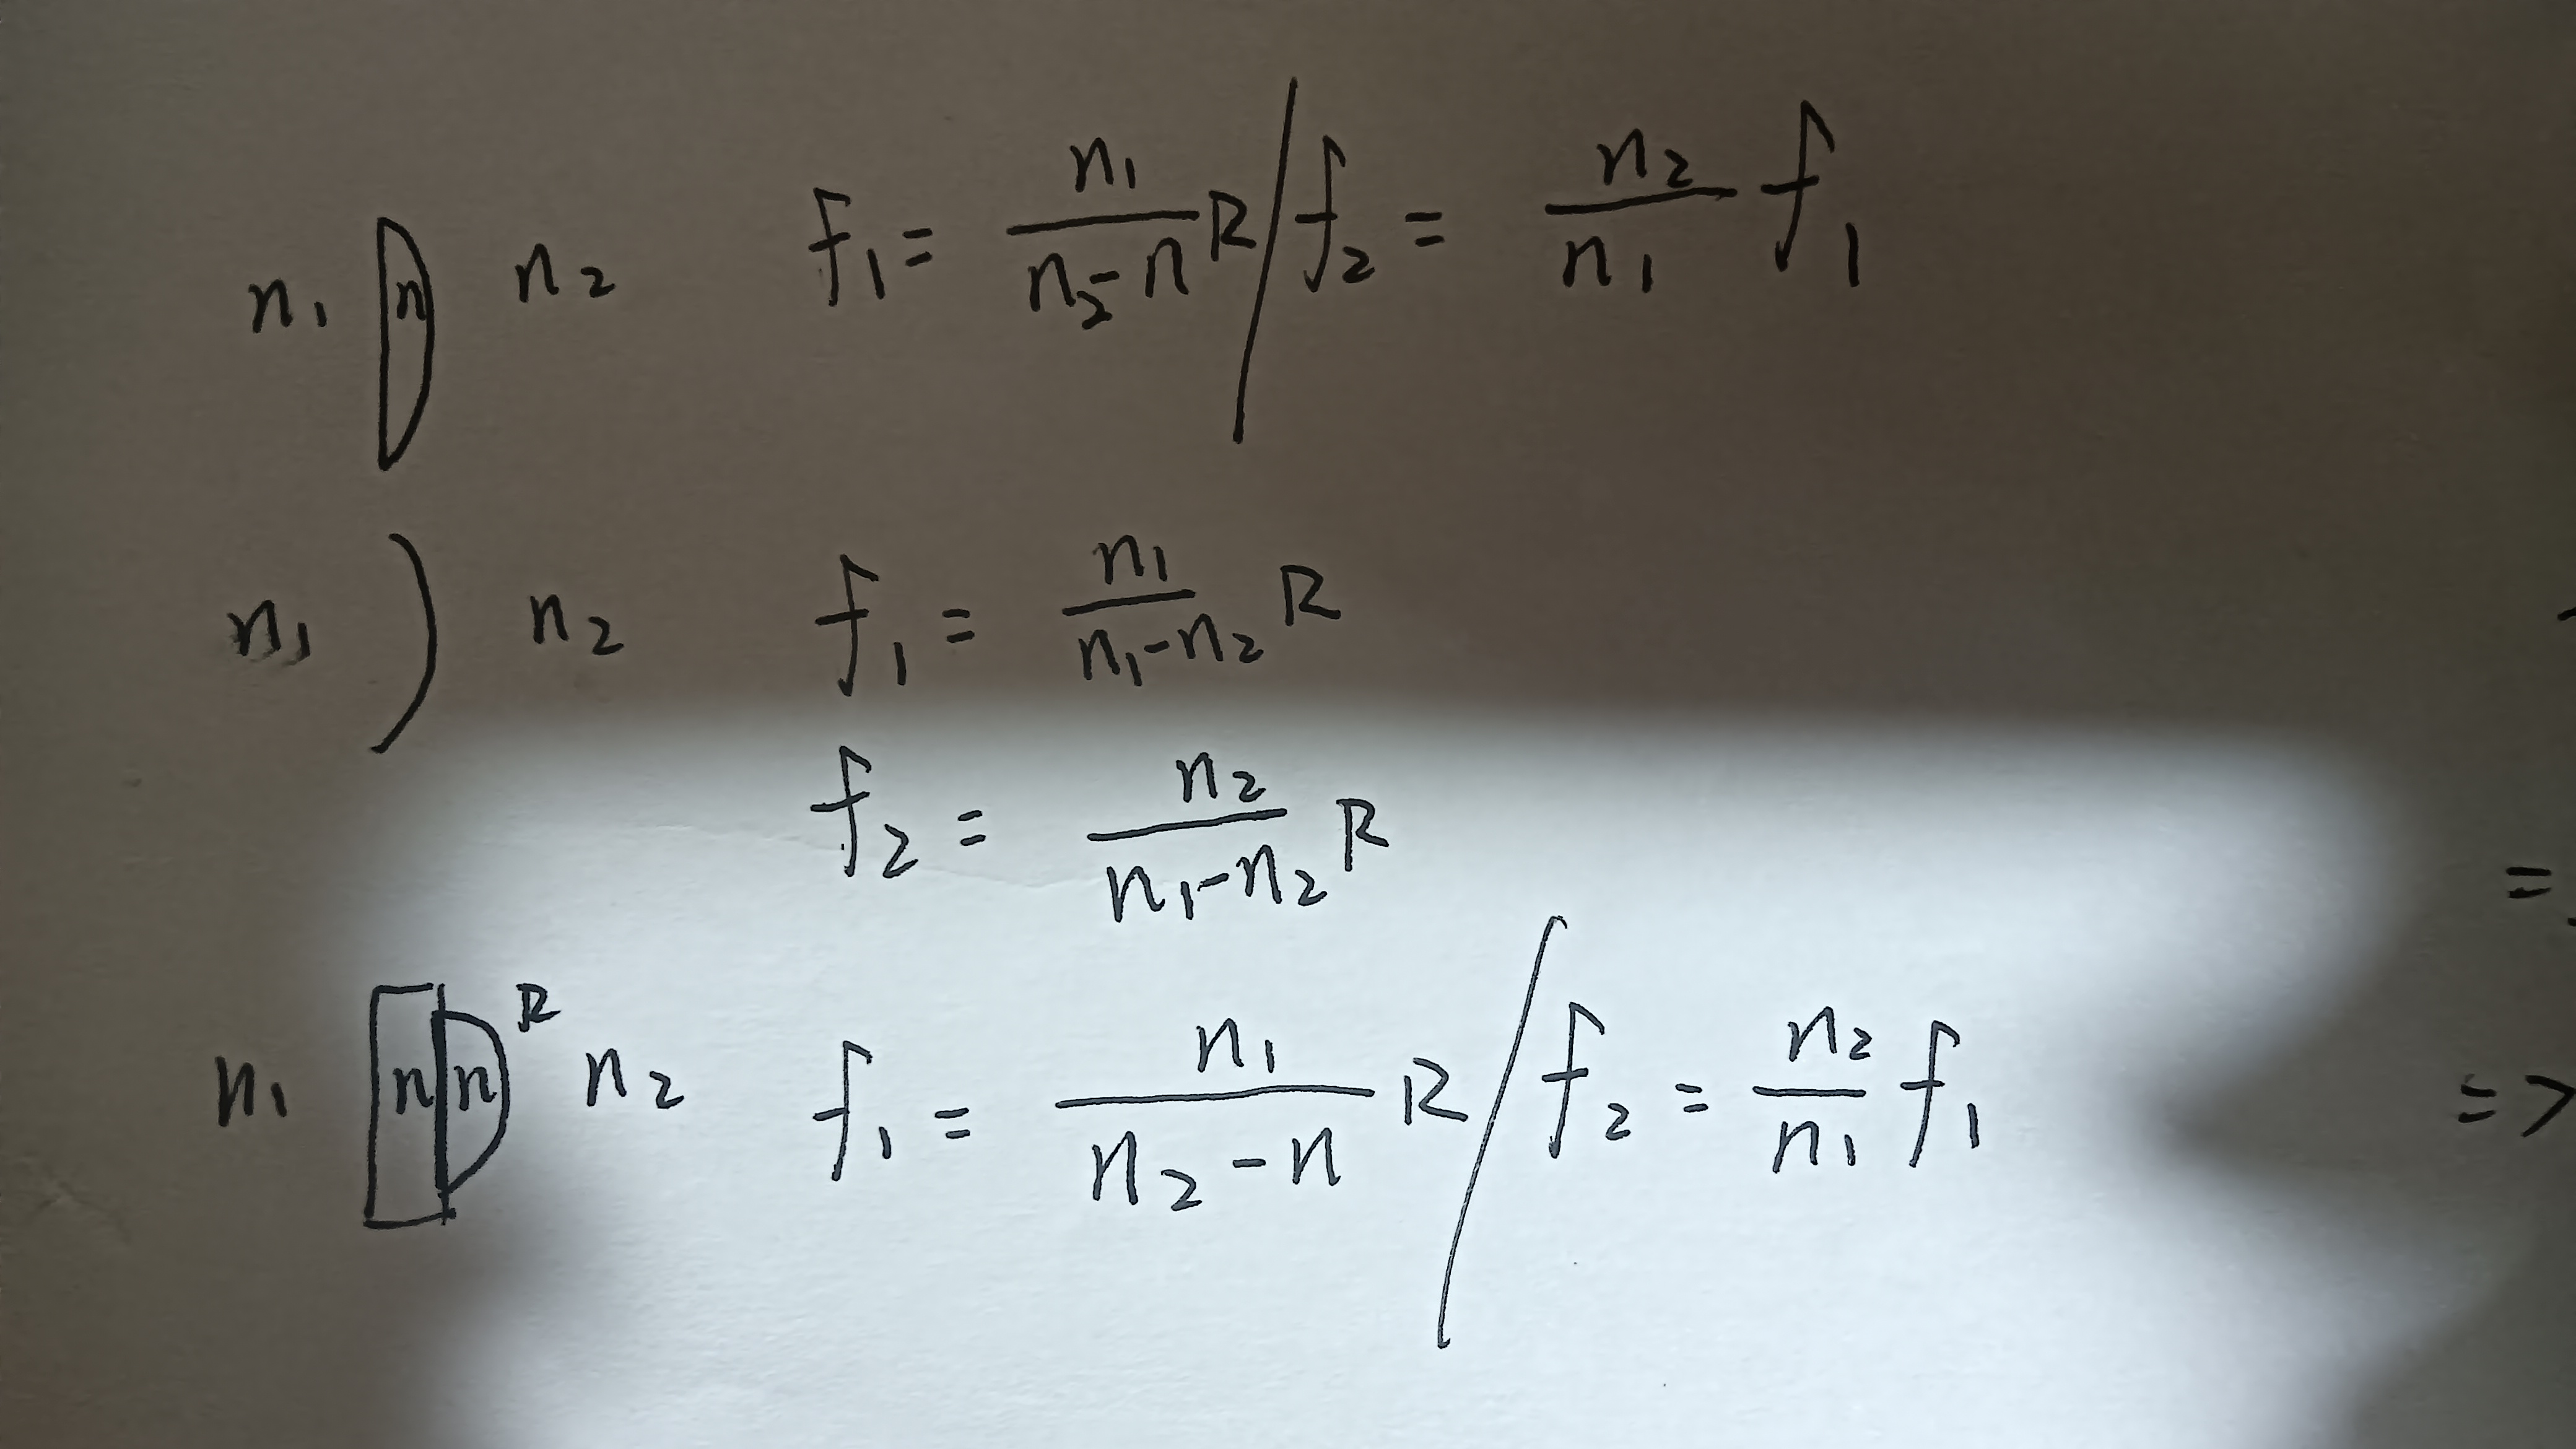 n₁ n n₂ f₁ = n₁/(n₂-n) R / f₂ = n₂/n₁ f₁
n₁ ) n₂ f₁ = n₁/(n₁-n₂) R
f₂ = n₂/(n₁-n₂) R
n₁ n n R n₂ f₁ = n₁/(n₂-n) R / f₂ = n₂/n₁ f₁ =>